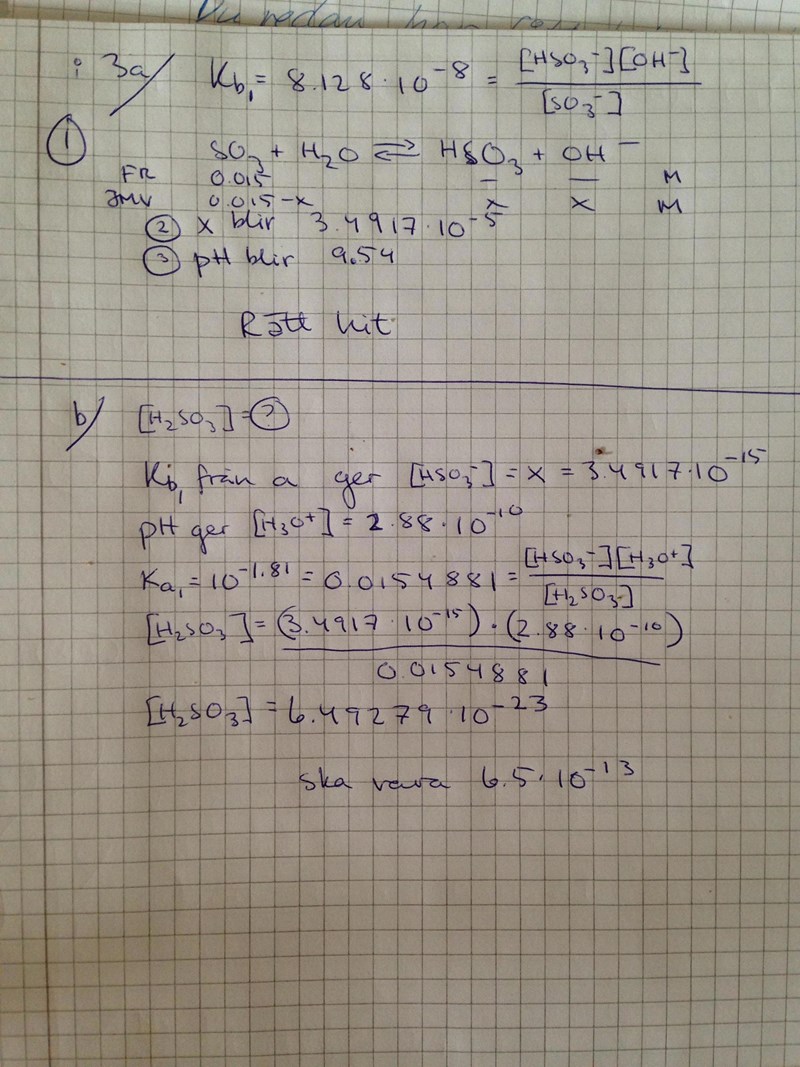 Du redan han
: 3a/ Kb₁ = 8.128·10⁻⁸ = [HSO₃⁻][OH⁻] / [SO₃⁻]
① SO₃ + H₂O ⇌ HSO₃ + OH⁻
FR 0.015 – – M
JMV 0.015-x x x M
② x blir 3.4917·10⁻⁵
③ pH blir 9.54
Rätt hit
b/ [H₂SO₃] = ?
Kb₁ från a ger [HSO₃⁻] = x = 3.4917·10⁻¹⁵
pH ger [H₃O⁺] = 2.88·10⁻¹⁰
Ka₁ = 10⁻¹·⁸¹ = 0.0154881 = [HSO₃⁻][H₃O⁺] / [H₂SO₃]
[H₂SO₃] = (3.4917·10⁻¹⁵)·(2.88·10⁻¹⁰) / 0.0154881
[H₂SO₃] = 6.49279·10⁻²³
ska vara 6.5·10⁻¹³